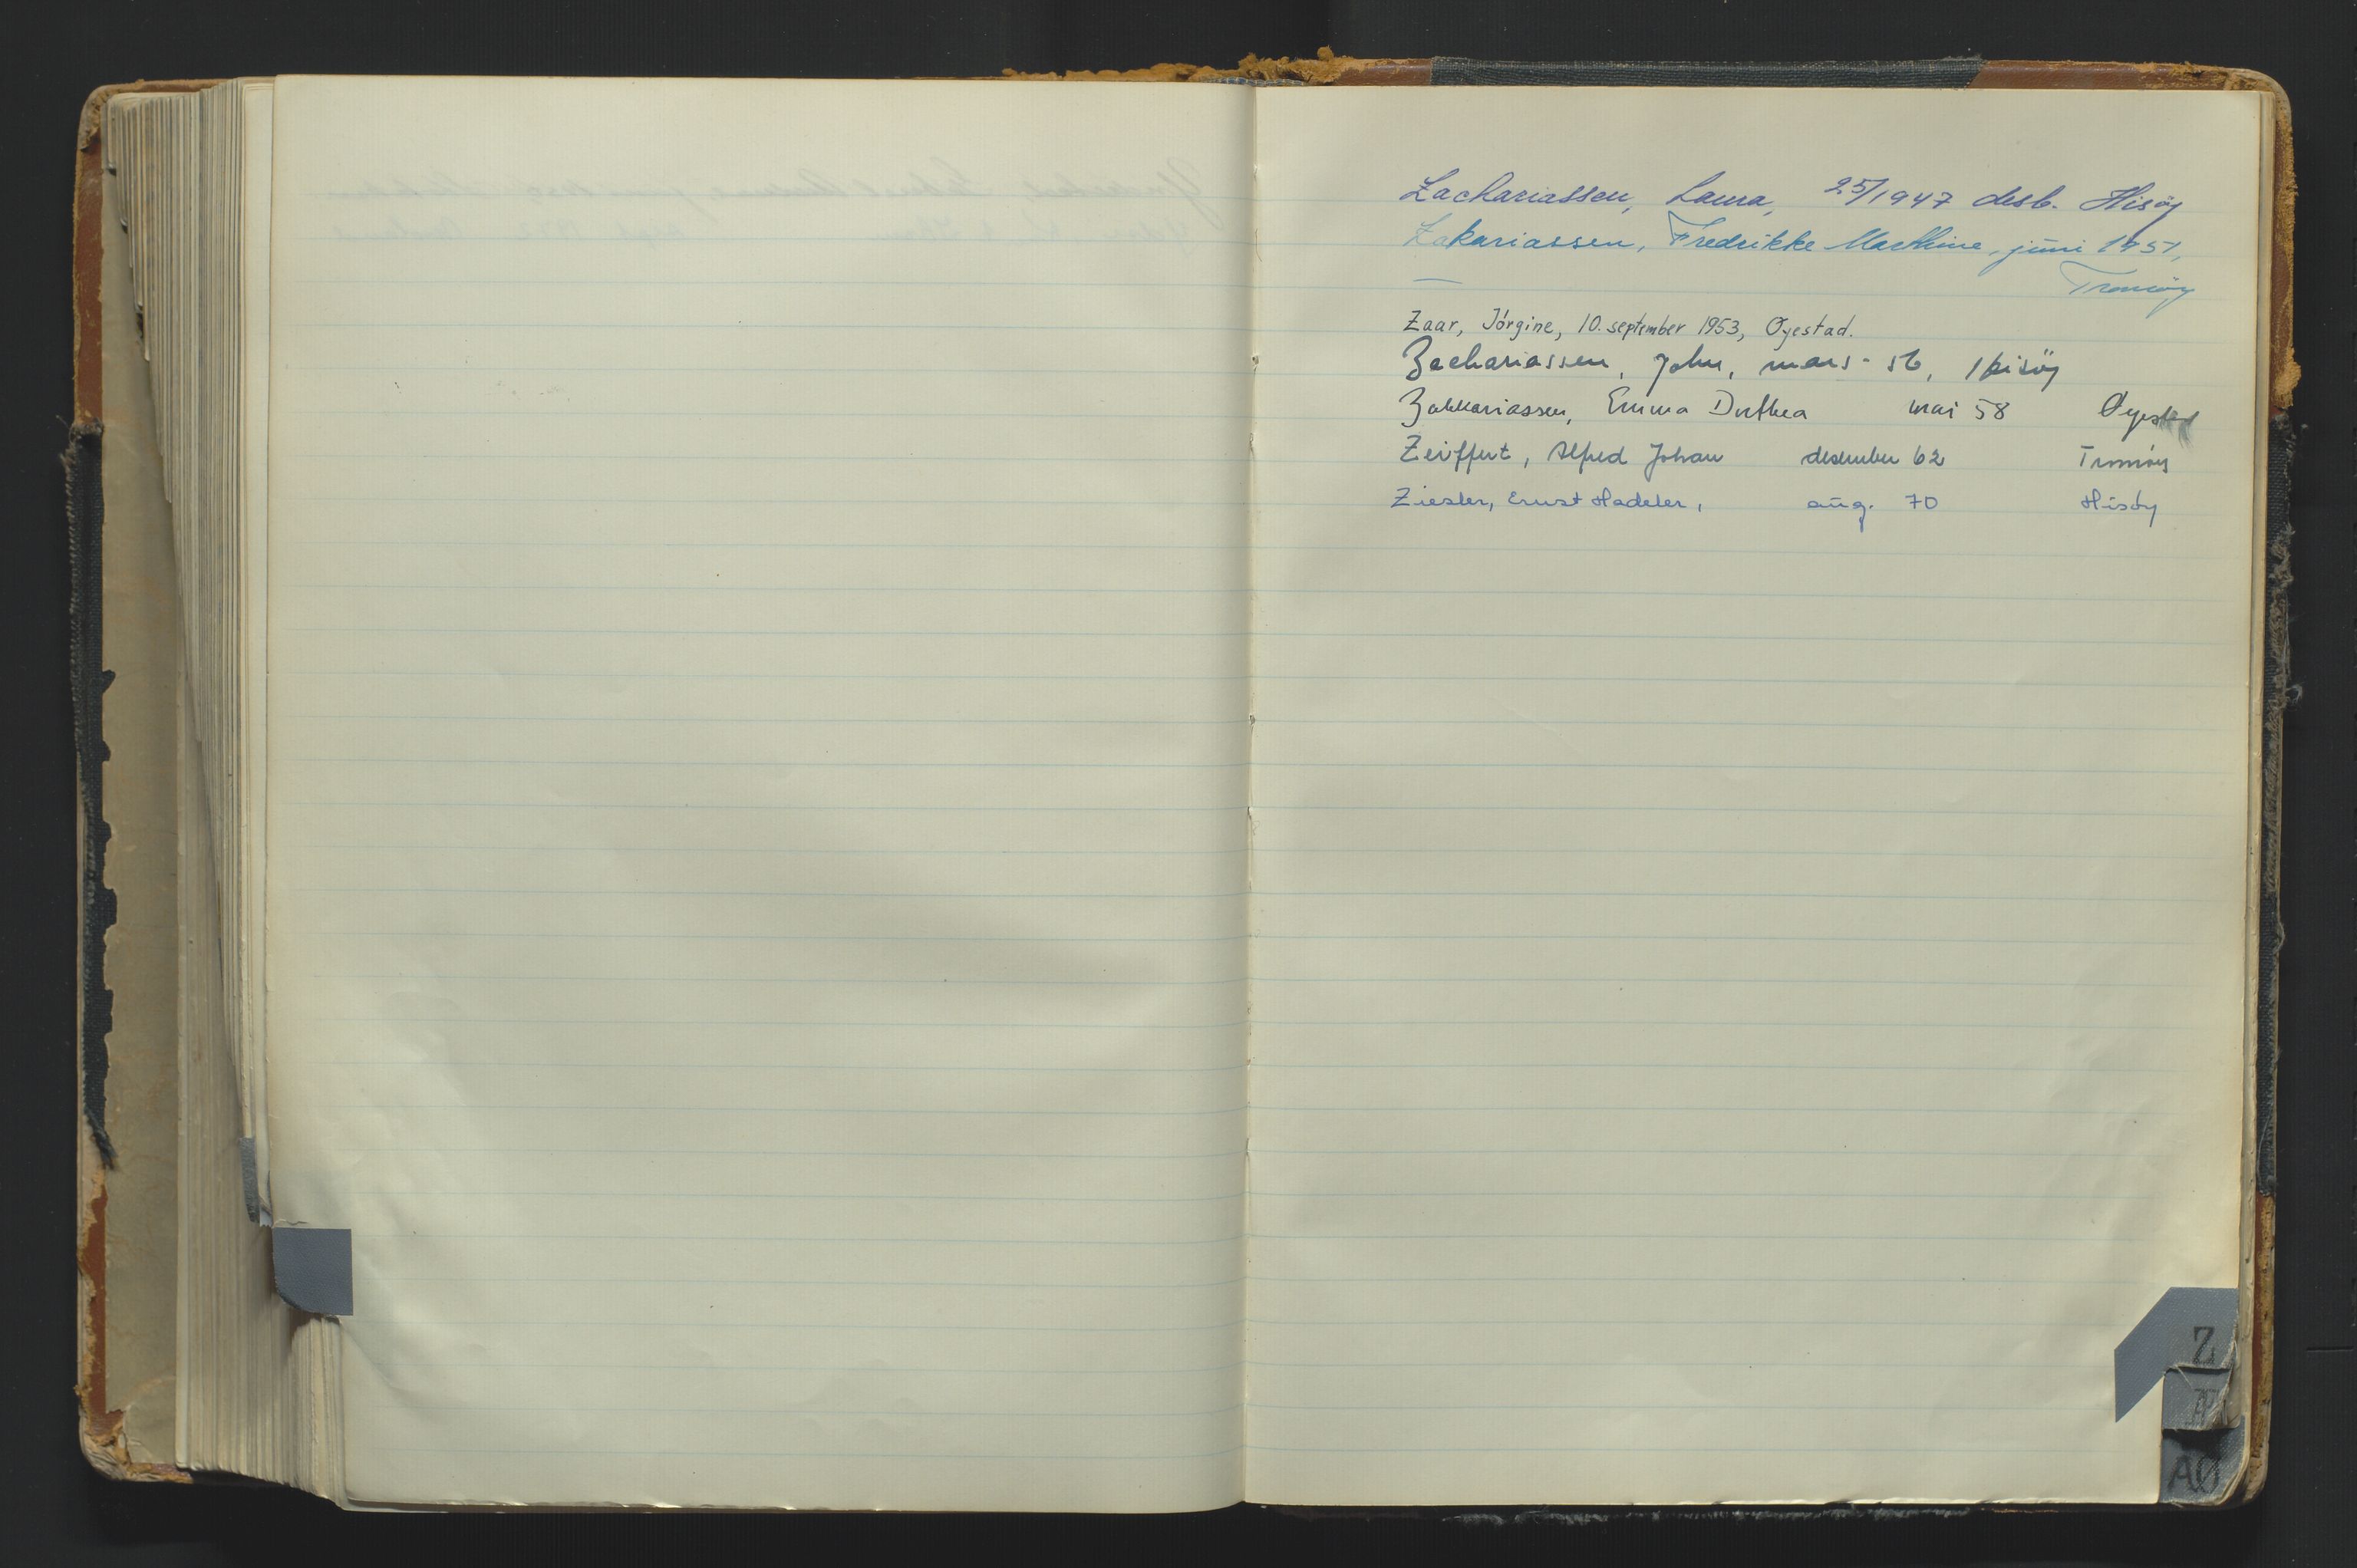 Zachariassen, Laura, 25/1947 desb. Hisøy
Zakariassen, Fredrikke Mathine, juni 1951,
— Tromøy
Zaar, Jørgine, 10. september 1953, Øyestad.
Zachariassen, John, mars - 56, Hisöy
Zakkariassen, Emma Dorthea mai 58 Øyestad
Zeiffert, Alfred Johan desember 62 Tromøy
Ziesler, Ernst Hadeler, aug. 70 Hisøy
Z
Æ
AØ